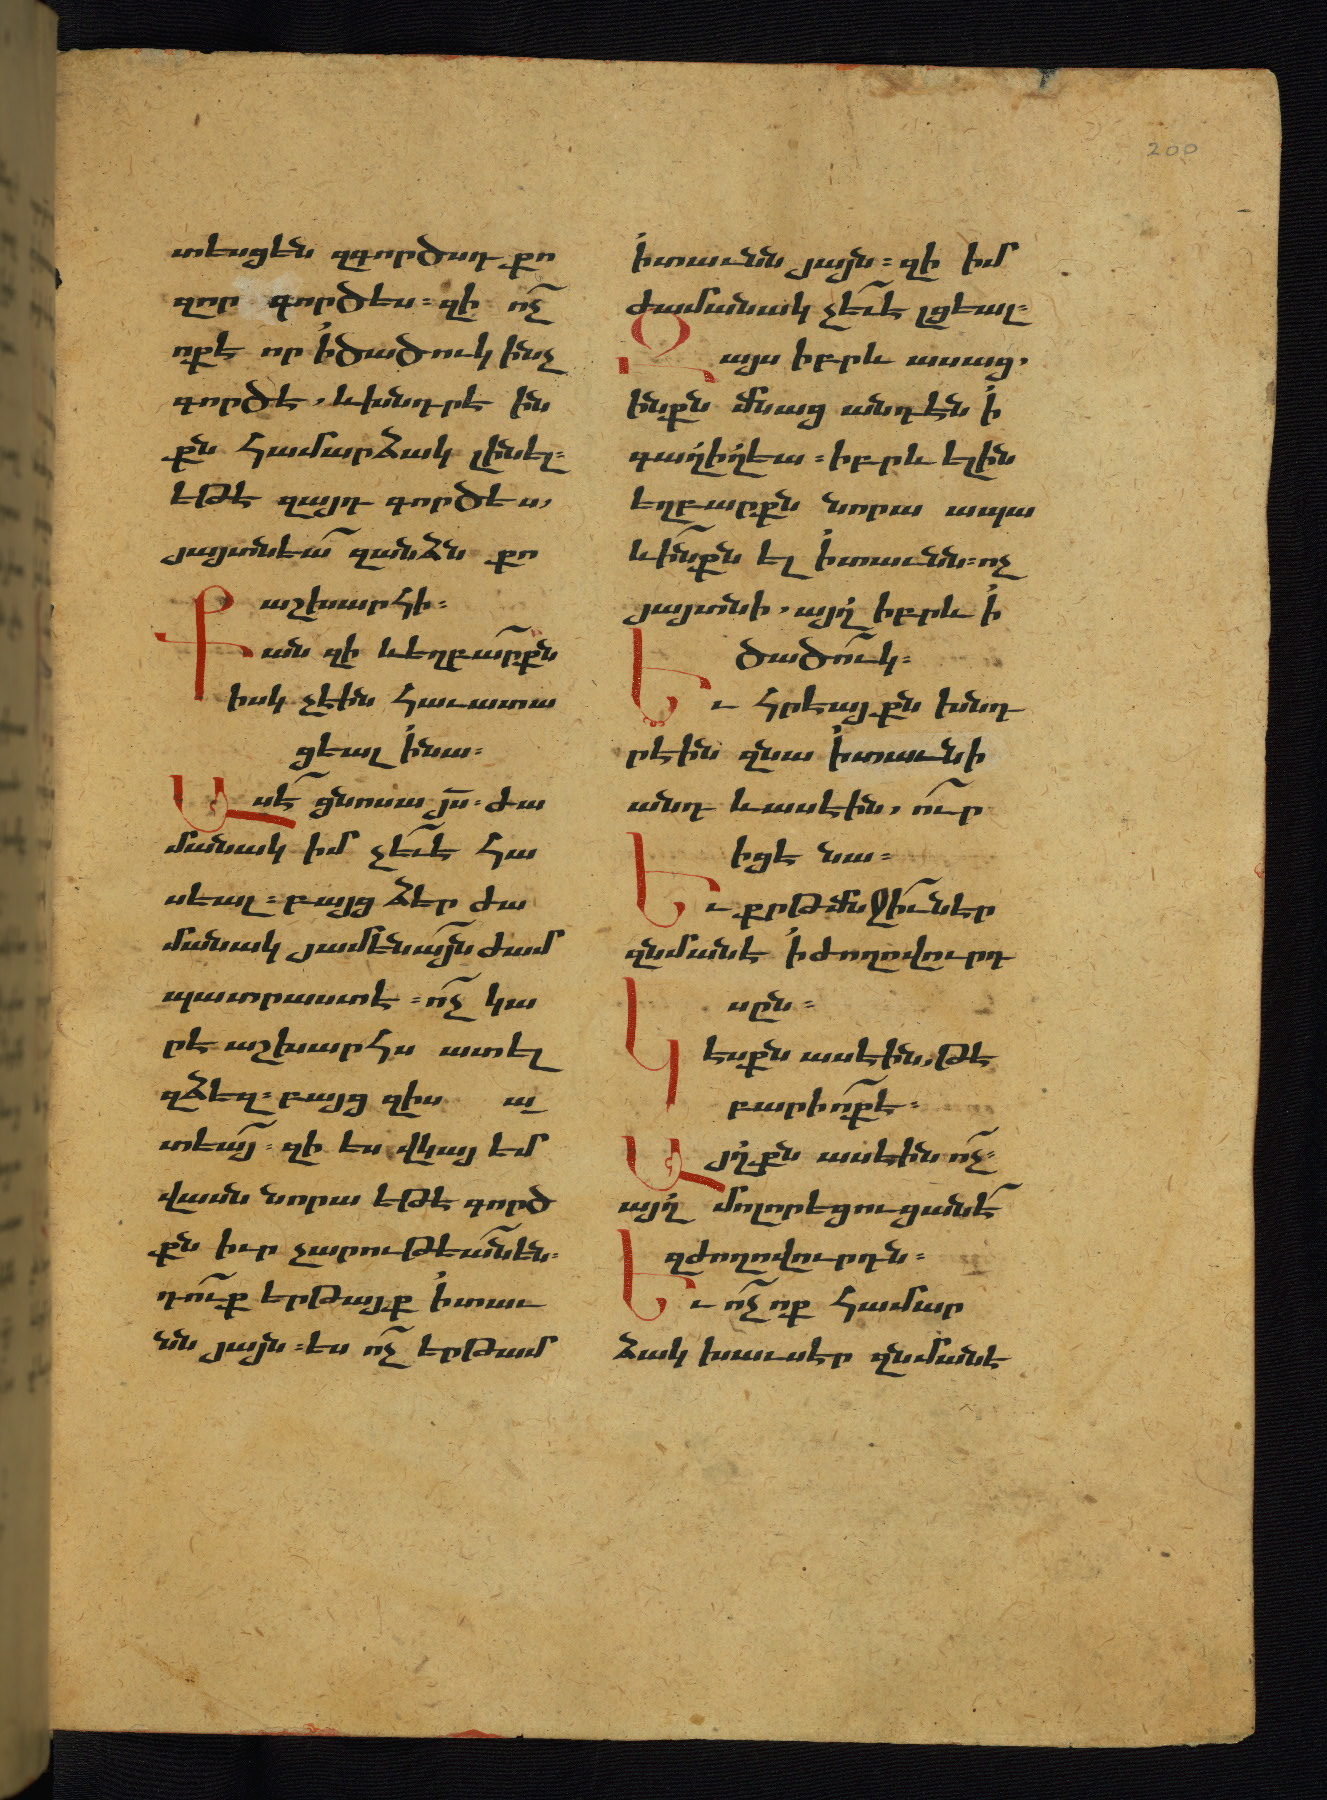 200
տեսցեն զգործսդ քո
զոր գործես։ զի ոչ̃
ոքէ որ ի ծածուկ ինչ
գործէ, և խնդրէ ին
քն համարձակ լինել։
եթէ զայդ գործես,
յայտնեա՜ զանձն քո
աշխարհի։
Քան զի և եղբա՜րքն
իսկ չէին հաւատա
ցեալ ի նա։
Ասէ՜ ցնոսա յս̃։ ժա
մանակ իմ չև՜ է հա
սեալ։ բայց ձեր ժա
մանակ յամենա՜յն ժամ
պատրաստ է։ ոչ̃ կա
րէ աշխարհս ատել
զձեզ։ բայց զիս ա
տեա՜յ։ զի ես վկայ եմ
վասն նորա եթէ գործ
քն իւր չարութեա՜ն են։
դո՜ւք երթայք ի տաւ
նն յայն։ ես ոչ̃ երթամ
ի տաւնն յայն։ զի իմ
ժամանակ չև՜ է լցեալ։
Զայս իբրև ասաց,
ինքն մնաց անդէն ի
գաղիղեա։ իբրև ելին
եղբարքն նորա ապա
և ի՜նքն ել ի տաւնն։ ոչ
յայտնի, այղ իբրև ի
ծածո՜ւկ։
Եւ հրեայքն խնդ
րէին զնա ի տաւնի
անդ և ասէին, ո՜ւր
իցէ նա։
Եւ քրթմնջի՜ւն էր
զնմանէ ի ժողովուրդ
սըն։
Կէսքն ասէին, թէ
բարի ո՜ք է։
Այղքն ասէին ոչ̃։
այղ մոլորեցուցանէ՜
զժողովուրդն։
Եւ ոչ̃ ոք համար
ձակ խաւսէր զնմանէ